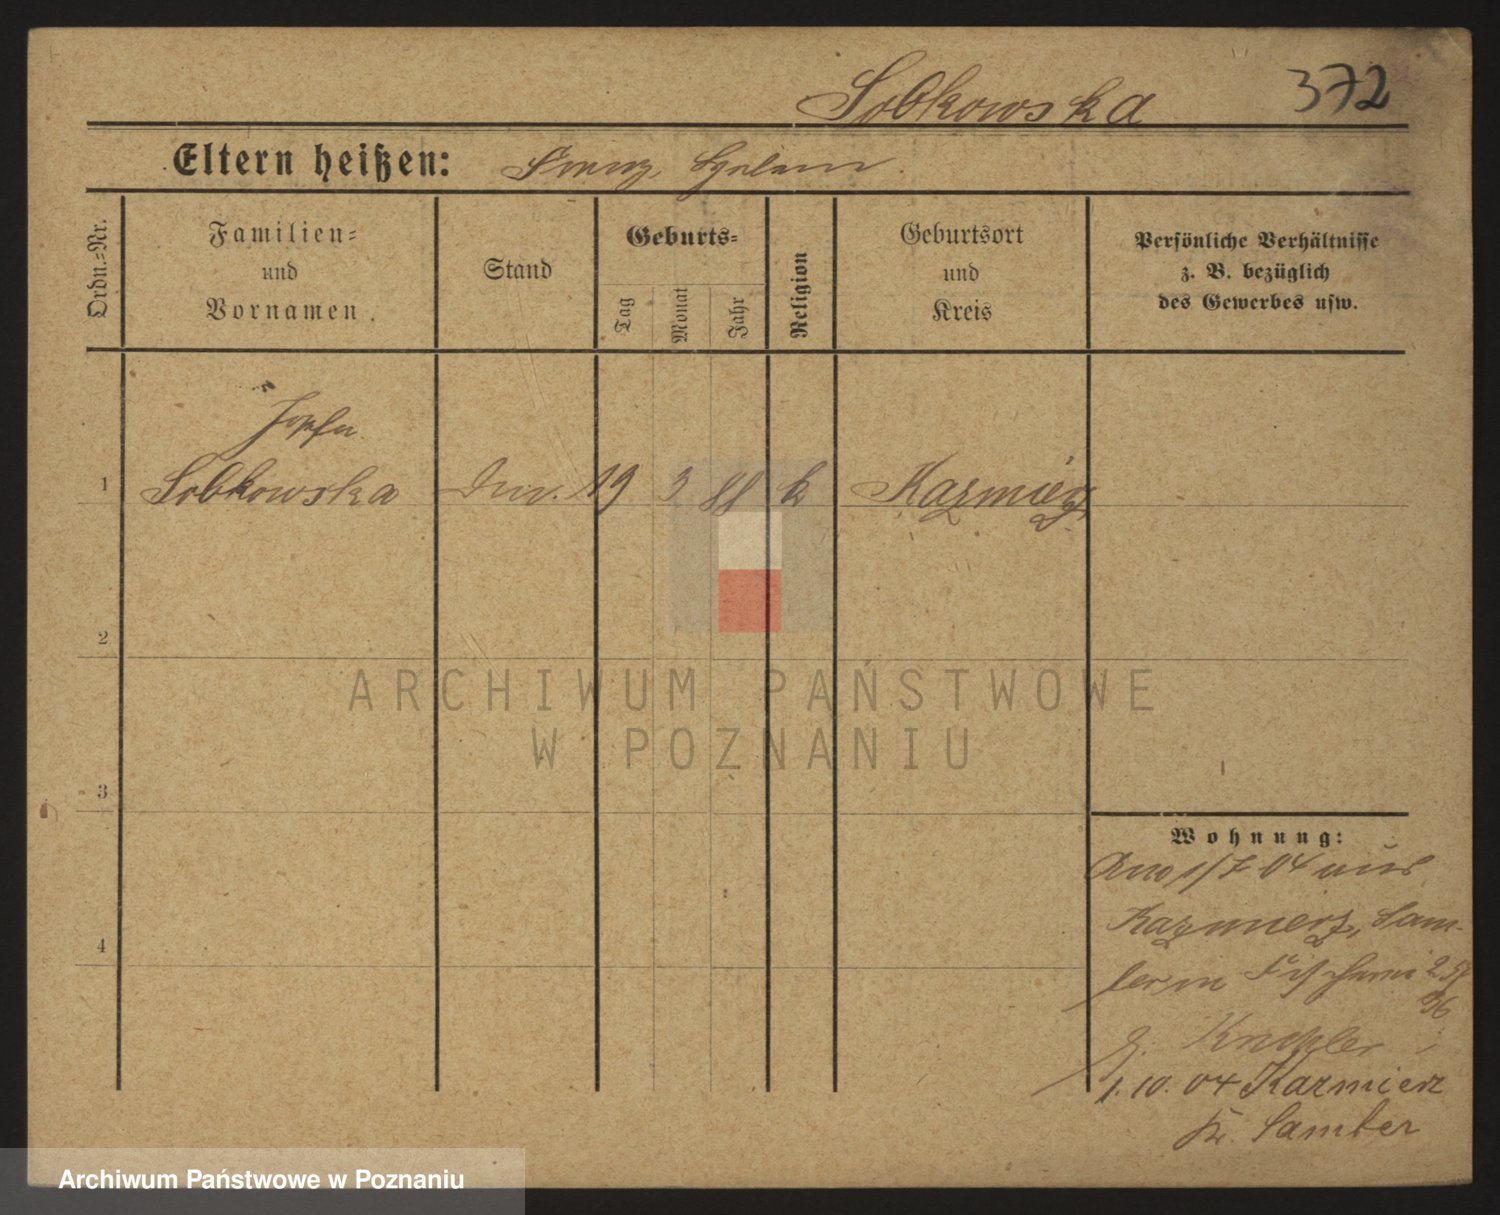 Sobkowska 372
Eltern heißen: Franz,
Ordn.-Nr.
Familien-
und
Vornamen.
Stand
Geburts-
Tag
Monat
Jahr
Religion
Geburtsort
und
Kreis
Persönliche Verhältnisse
z. B. bezüglich
des Gewerbes usw.
1 Sobkowska 19 3 88 k Kazmierz
2
3
4
ARCHIWUM PAŃSTWOWE
W POZNANIU
Wohnung:
1/7 04 aus
Kazmierz, Sam-
ter in
1.10.04 Kazmierz
Kr. Samter
Archiwum Państwowe w Poznaniu